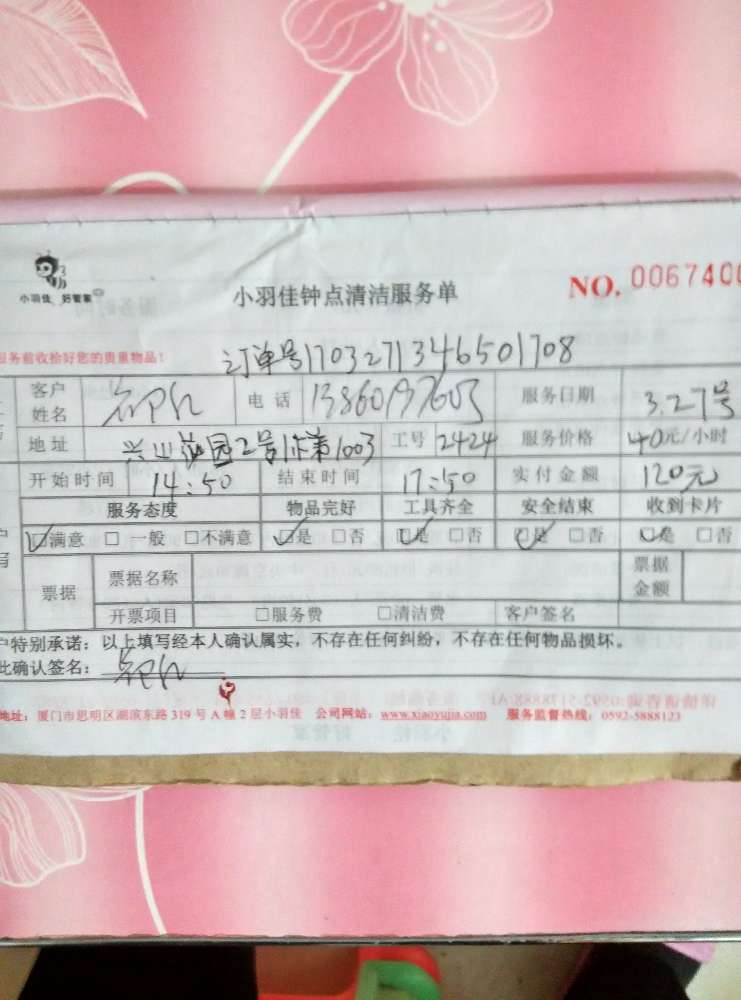 小羽佳 好管家
小羽佳钟点清洁服务单
NO. 0067400
服务前收拾好您的贵重物品!
订单号1703271346501708
客户姓名 电话 13860197603 服务日期 3.27号
地址 2号 1003 工号 2424 服务价格 40元/小时
开始时间 14:50 结束时间 17:50 实付金额 120元
服务态度 物品完好 工具齐全 安全结束 收到卡片
☑满意 □一般 □不满意 ☑是 □否 ☑是 □否 ☑是 □否 ☑是 □否
票据 票据名称 票据金额
开票项目 □服务费 □清洁费 客户签名
户特别承诺:以上填写经本人确认属实,不存在任何纠纷,不存在任何物品损坏。
此确认签名:
地址:厦门市思明区湖滨东路 319 号 A 幢 2 层小羽佳 公司网站:www.xiaoyujia.com 服务监督热线:0592-5888123